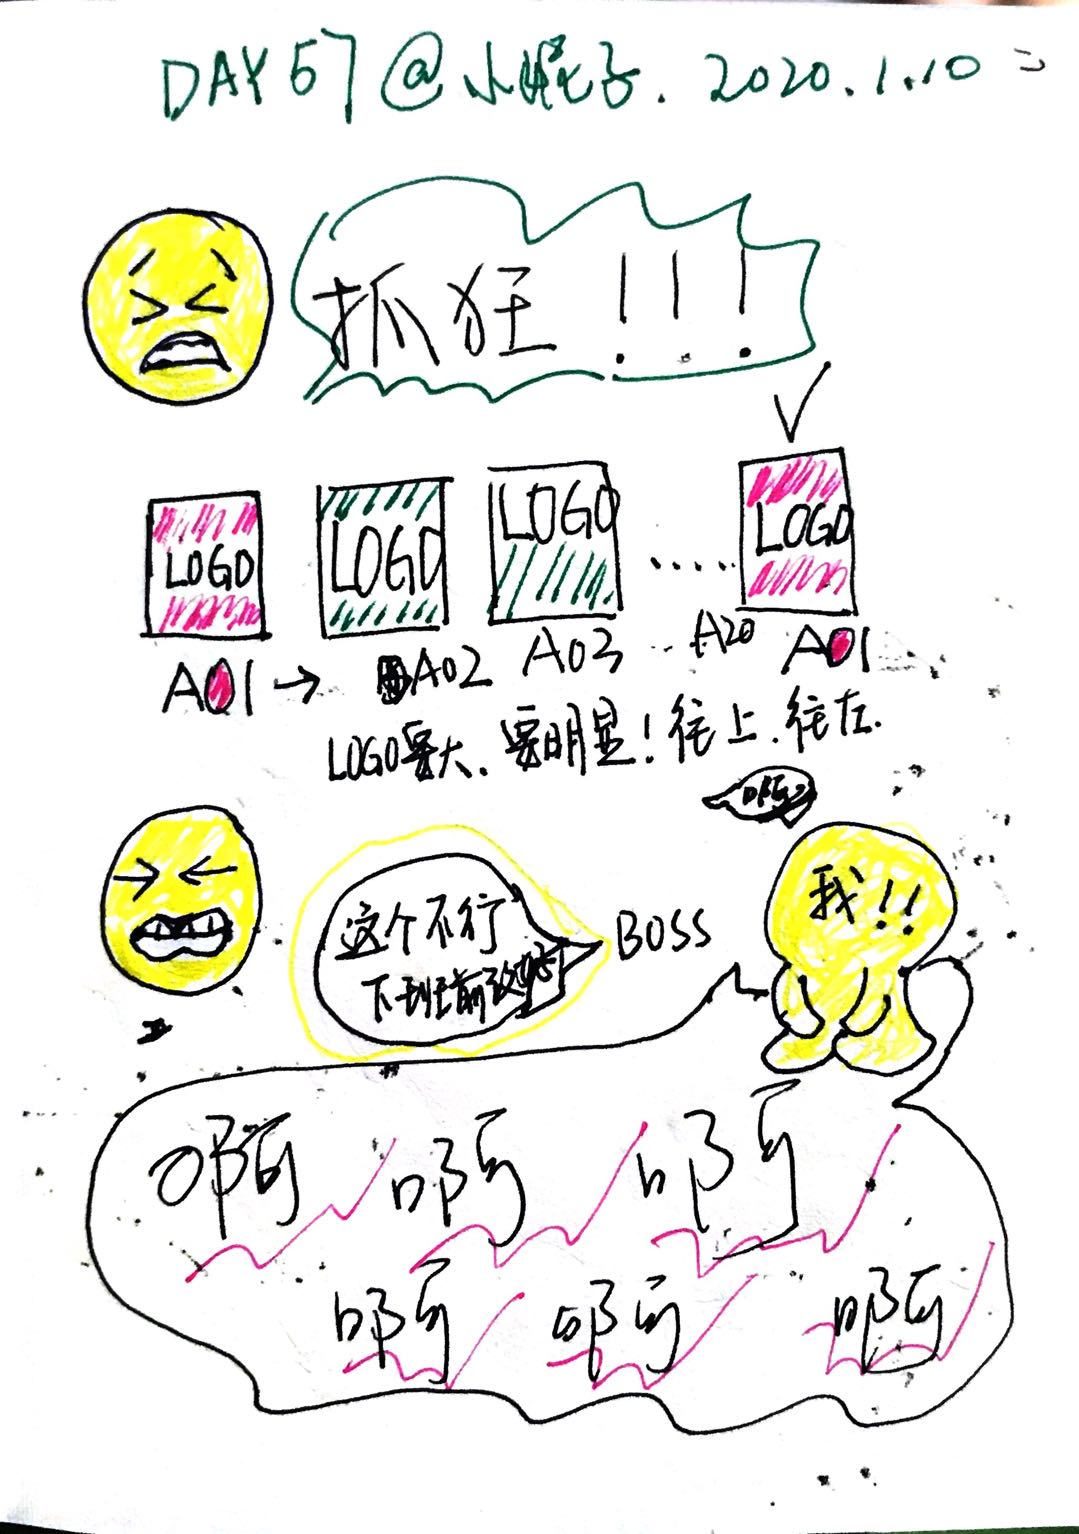 DAY 57 @小幌子. 2020.1.10
抓狂!!!
LOGO LOGO LOGO ...... LOGO
A01 → A02 A03 ... A20 A01
LOGO要大. 要明显! 往上. 往左.
啊
这个不行
下班前改好
BOSS
我!!
啊 啊 啊
啊 啊 啊